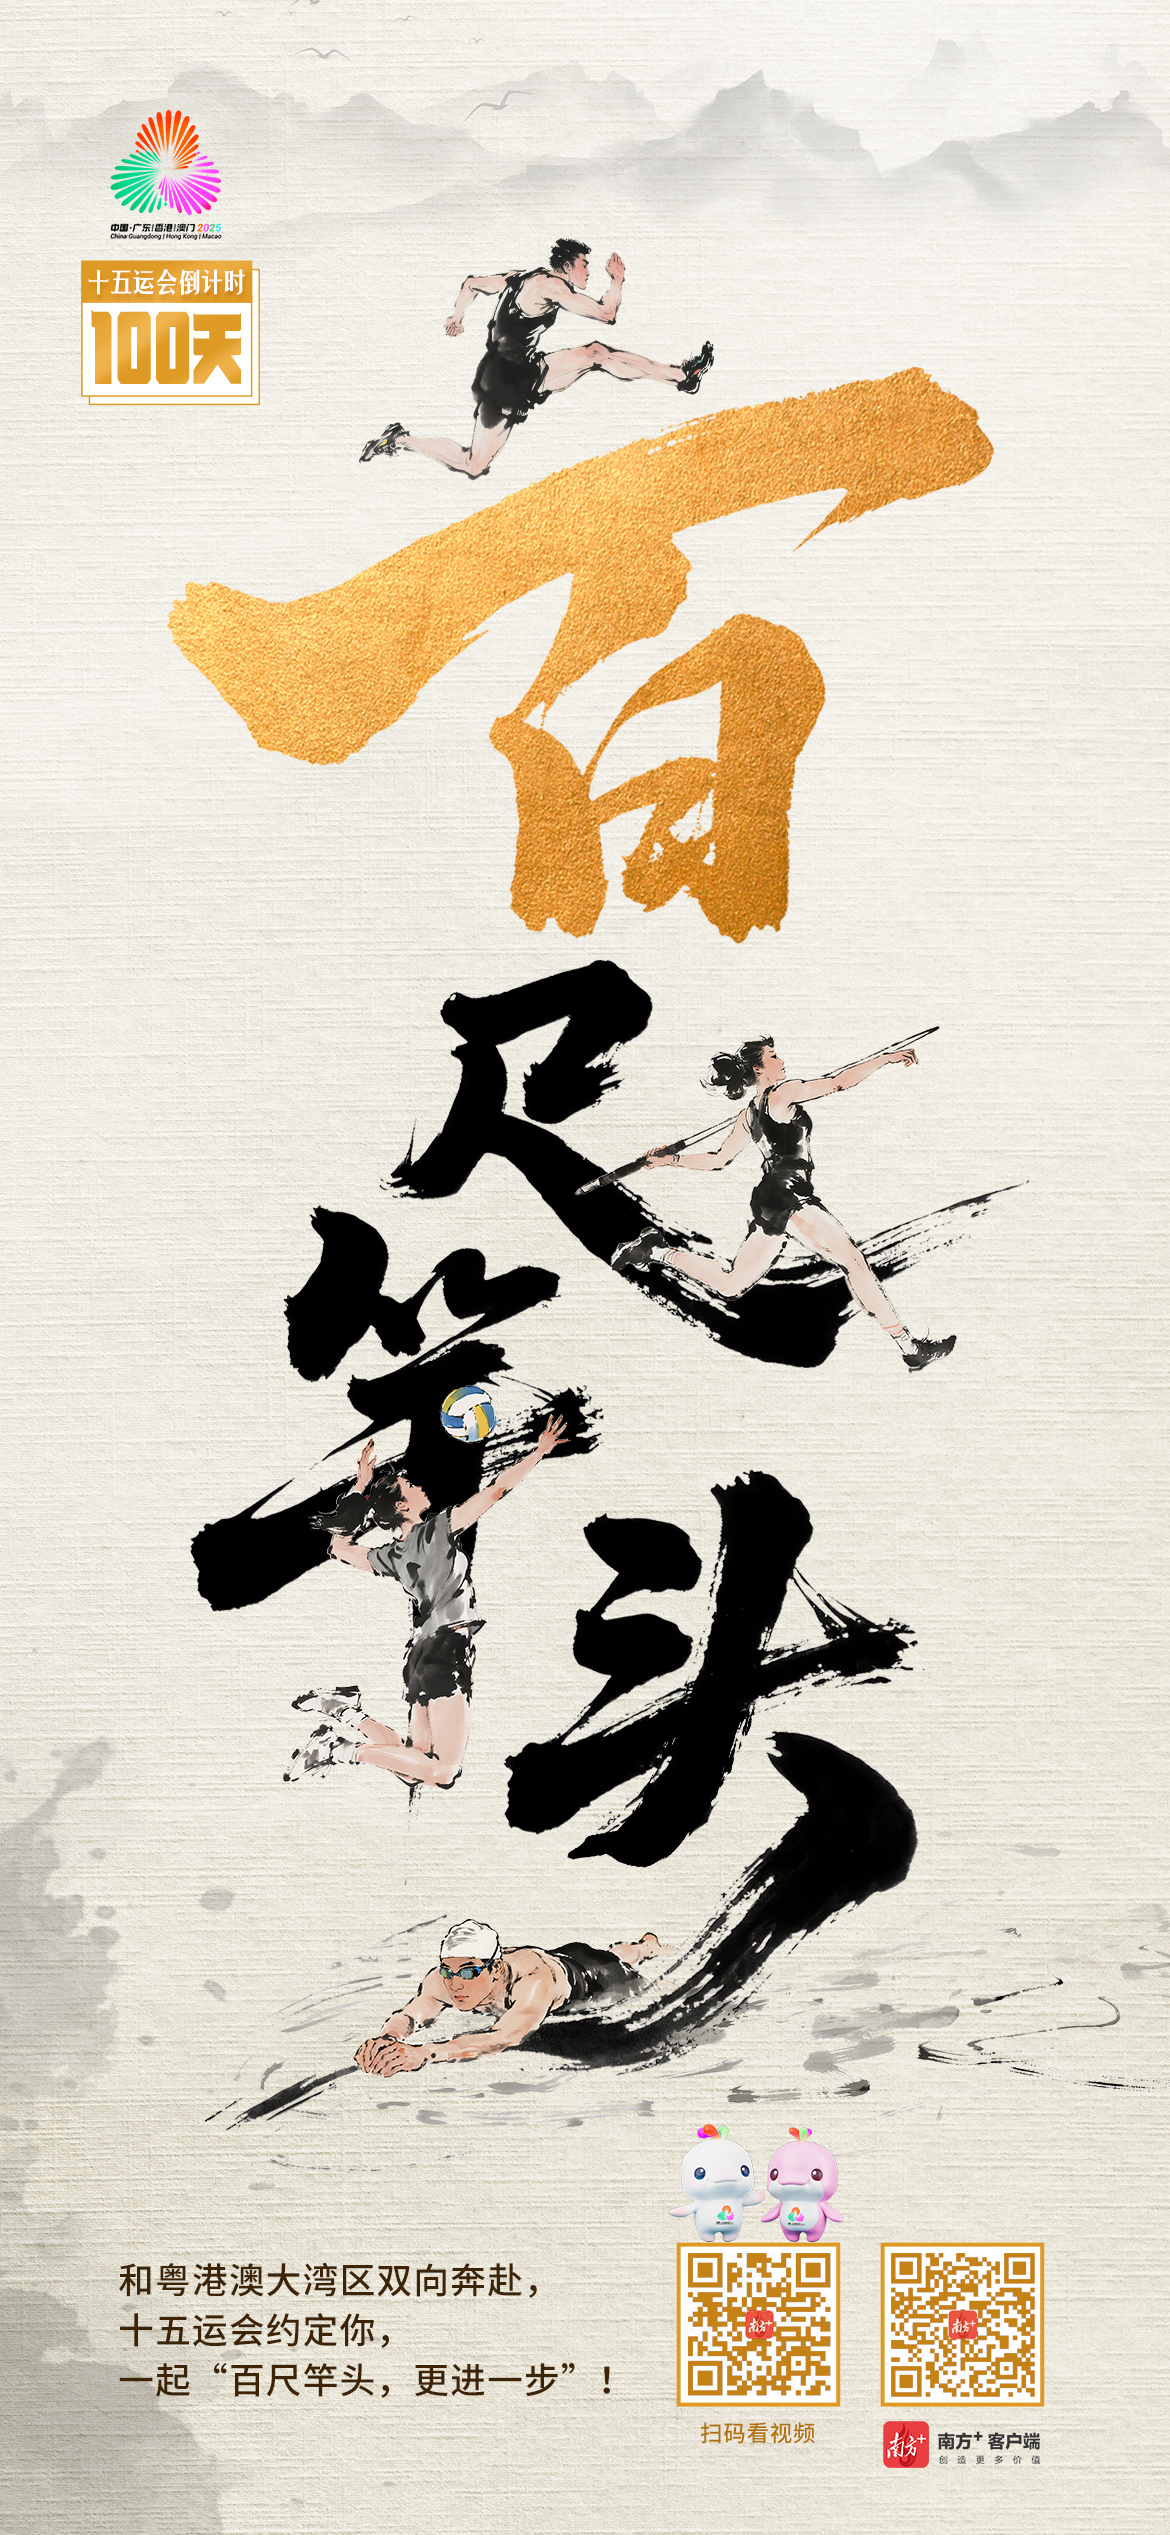 中国·广东|香港|澳门 2025
China·Guangdong | Hong Kong | Macao
十五运会倒计时
100天
百
尺
竿
头
和粤港澳大湾区双向奔赴，
十五运会约定你，
一起“百尺竿头，更进一步”！
南方+
南方+
扫码看视频
南方+
南方+ 客户端
创造更多价值